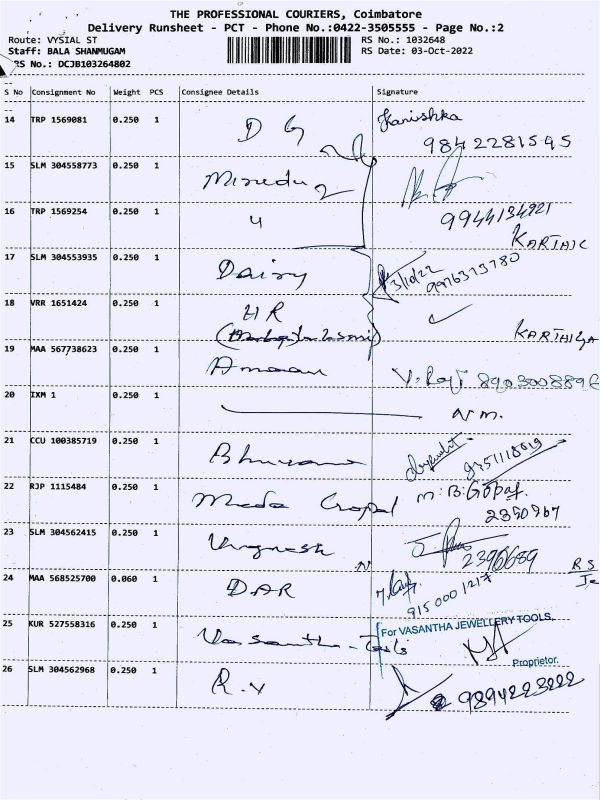 THE PROFESSIONAL COURIERS, Coimbatore
Delivery Runsheet - PCT - Phone No.:0422-3505555 - Page No.:2
Route: VYSIAL ST RS No.: 1032648
Staff: BALA SHANMUGAM RS Date: 03-Oct-2022
RS No.: DCJB103264802
S No Consignment No Weight PCS Consignee Details Signature
14 TRP 1569081 0.250 1 D G Kanishka
9842281595
15 SLM 304558773 0.250 1
16 TRP 1569254 0.250 1 4 9944134921
KARTHIC
17 SLM 304553935 0.250 1 Dairy 3/10/22 9976373780
18 VRR 1651424 0.250 1 HR
KARTHIGA
19 MAA 567738623 0.250 1 V. Raj 8903008896
20 IXM 1 0.250 1 N.M.
21 CCU 100385719 0.250 1 Bhuvana 9751118019
22 RJP 1115484 0.250 1 Mada Gopal M.B.Gopal.
2390967
23 SLM 304562415 0.250 1 Vignesh 2396689
24 MAA 568525700 0.060 1 DAR 915 000 1217
RS
25 KUR 527558316 0.250 1 Vasantha - Tools For VASANTHA JEWELLERY TOOLS,
Proprietor.
26 SLM 304562968 0.250 1 R.V 9894223222